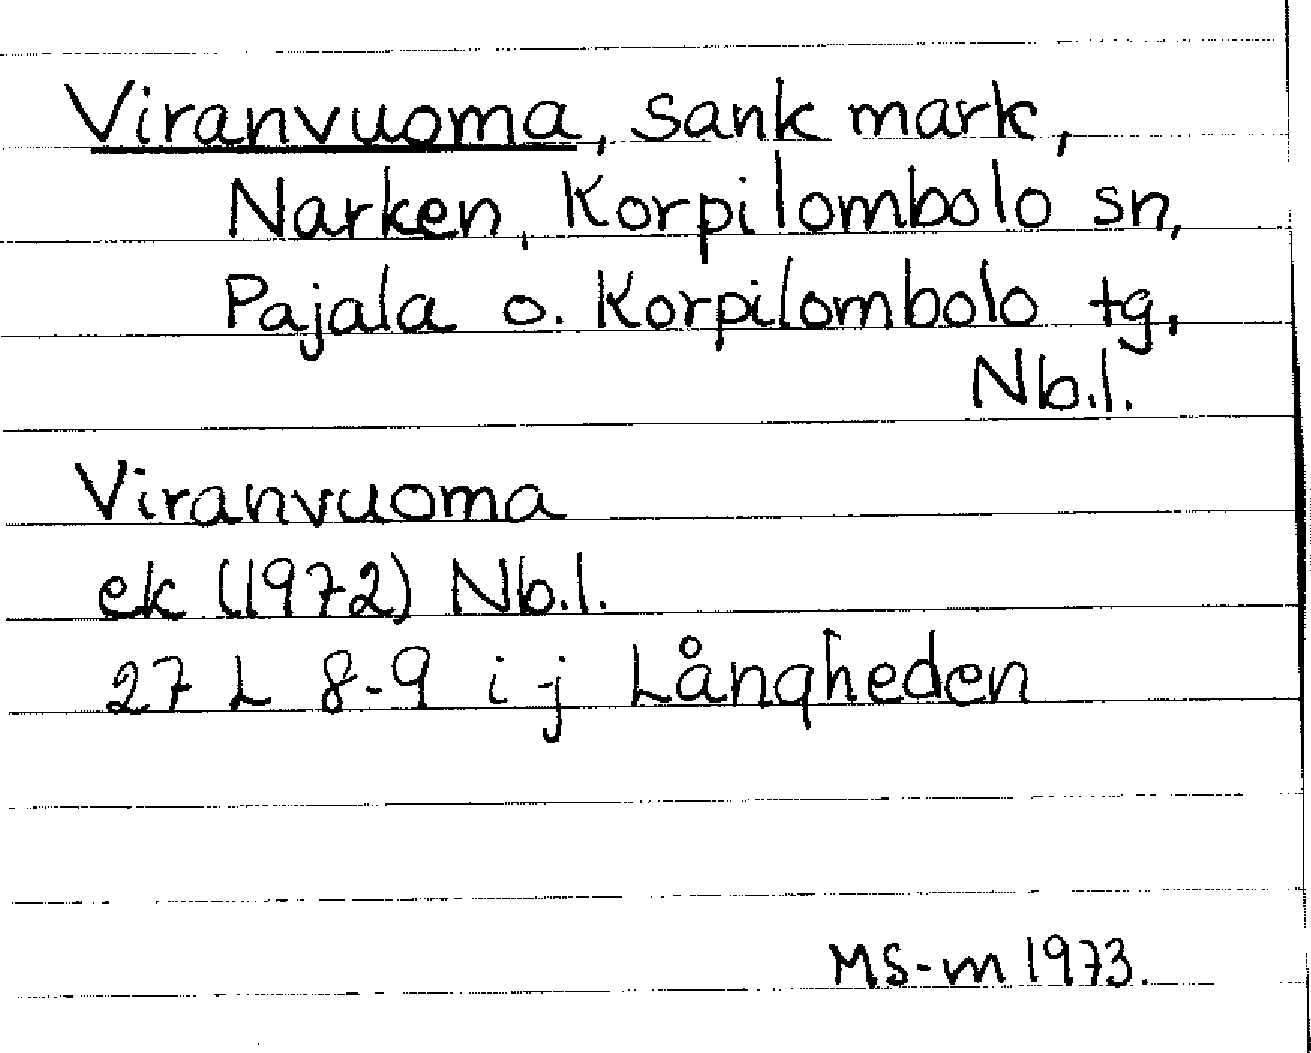 Viranvuoma, sank mark,
Narken, Korpilombolo sn,
Pajala o. Korpilombolo tg,
Nb.l.
Viranvuoma
ek (1972) Nb.l.
27 L 8-9 i-j Långheden
MS-m 1973.